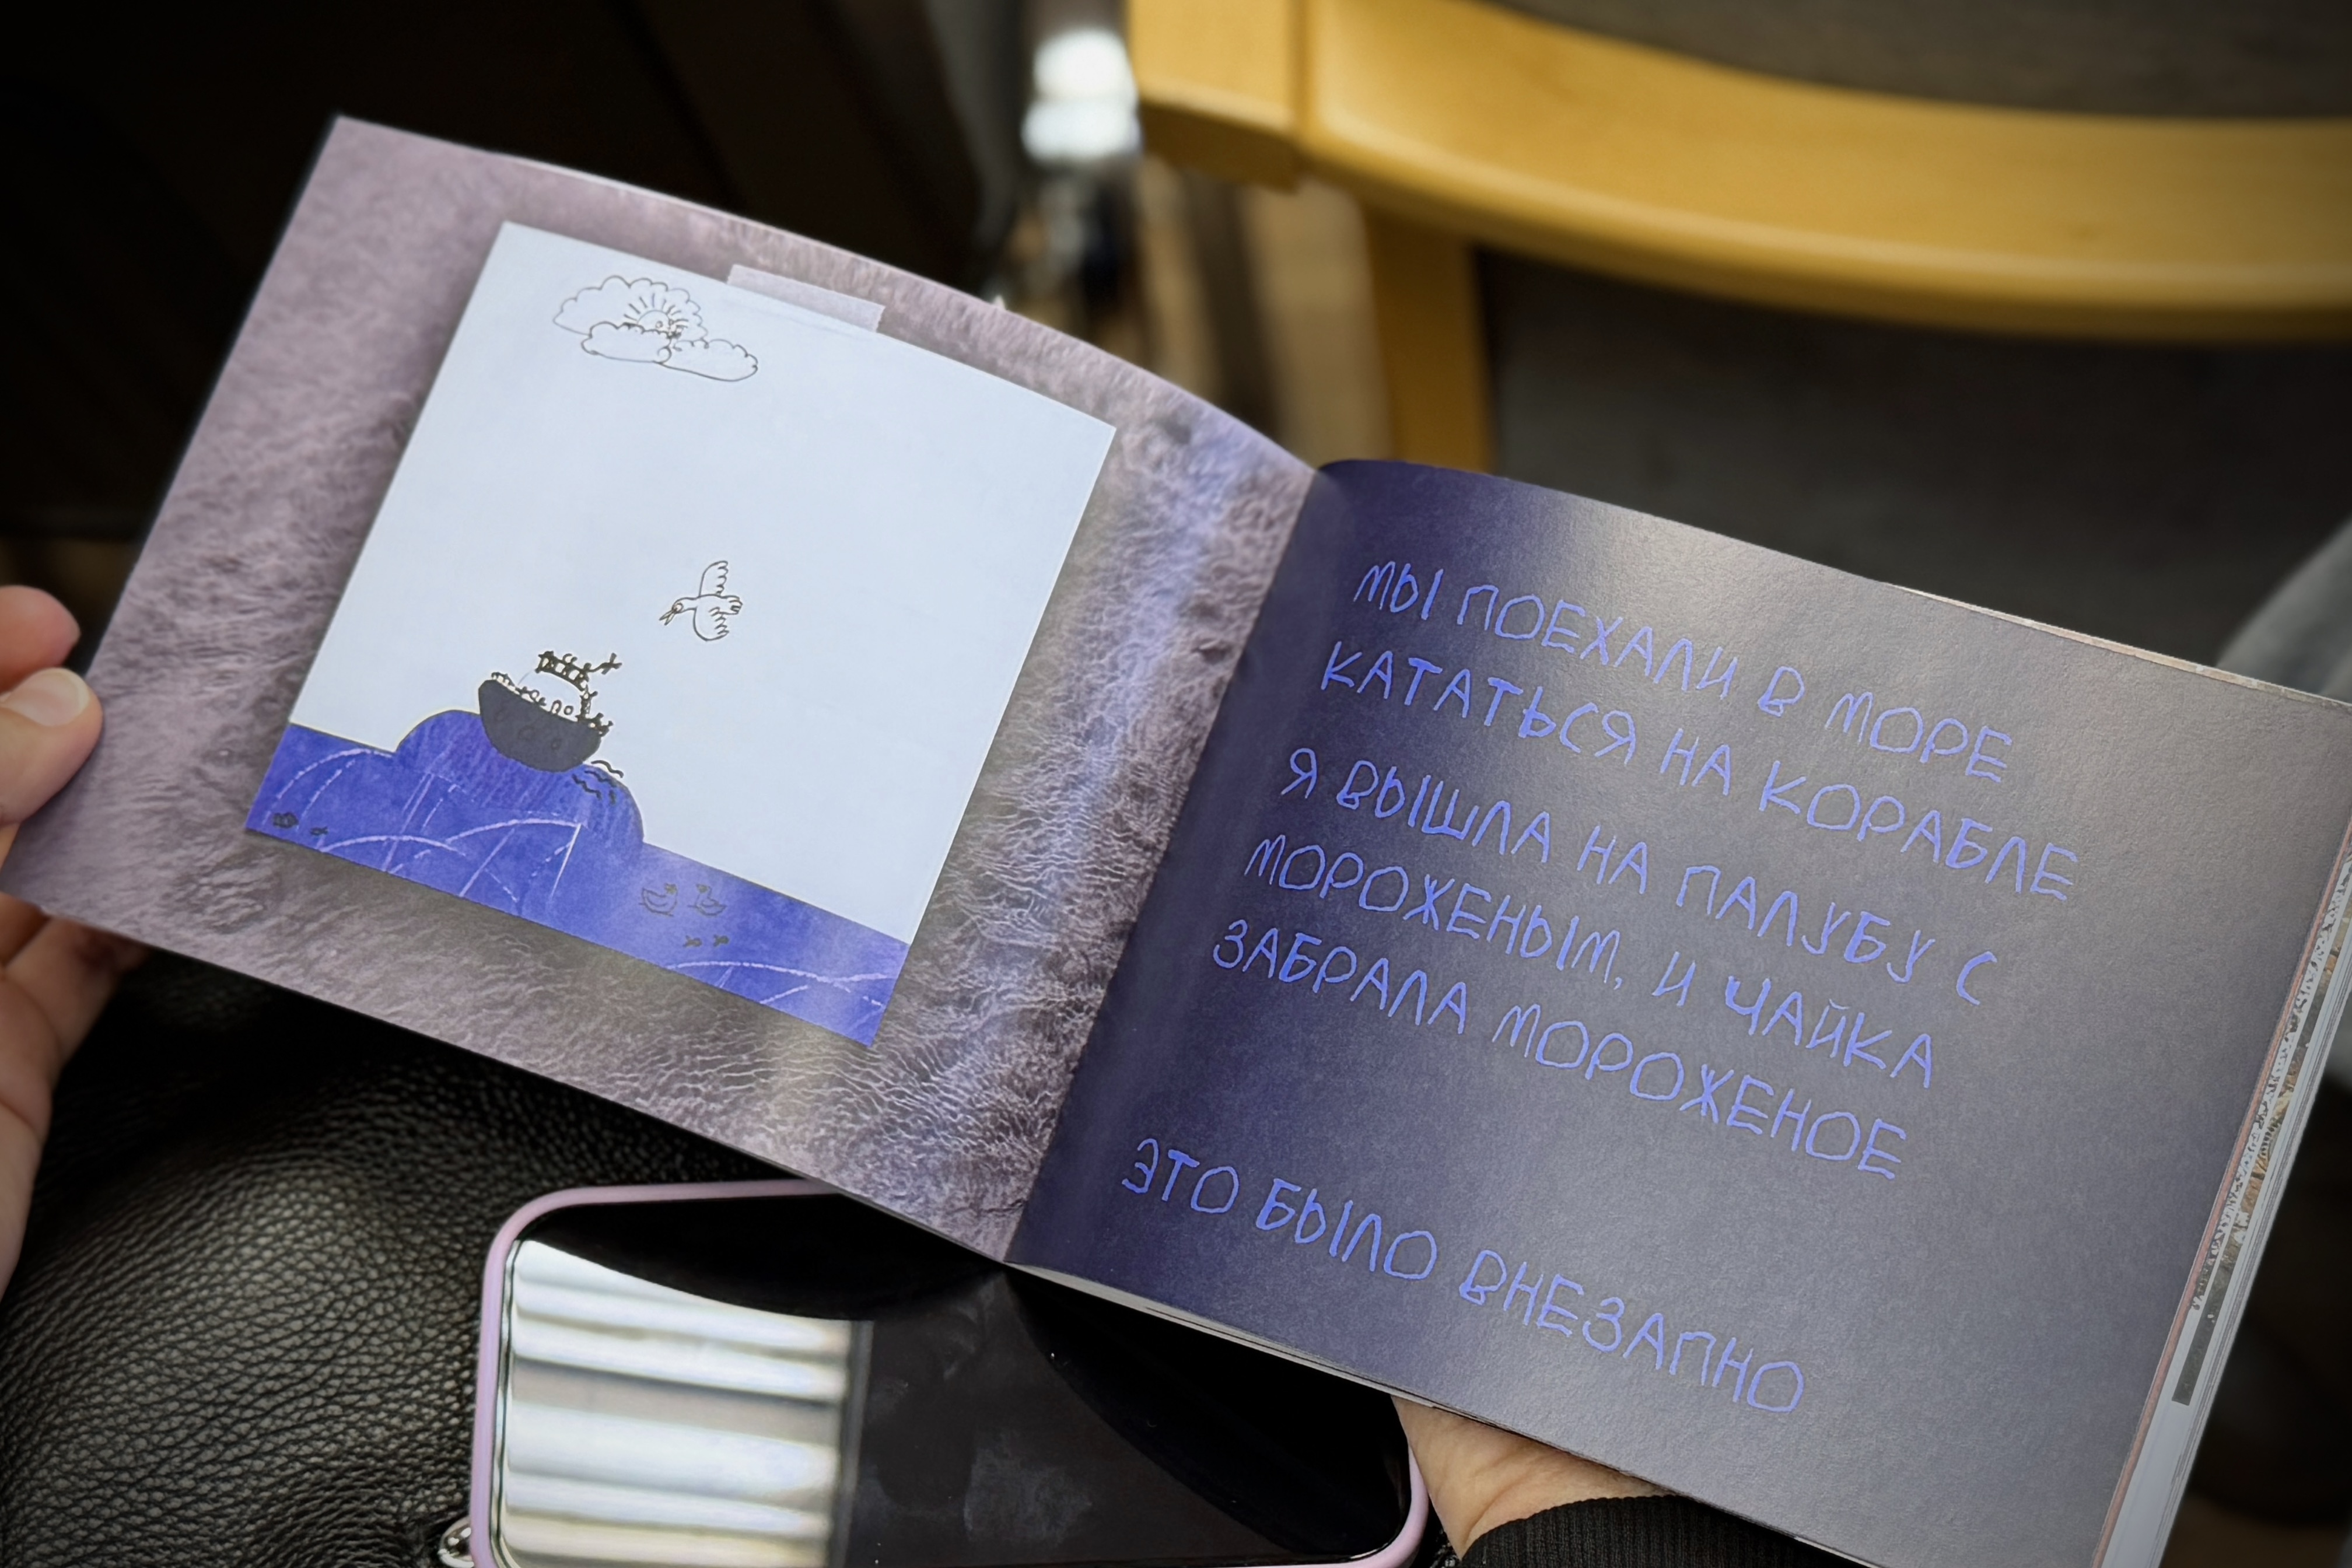 МЫ ПОЕХАЛИ В МОРЕ
КАТАТЬСЯ НА КОРАБЛЕ
Я ВЫШЛА НА ПАЛУБУ С
МОРОЖЕНЫМ, И ЧАЙКА
ЗАБРАЛА МОРОЖЕНОЕ
ЭТО БЫЛО ВНЕЗАПНО